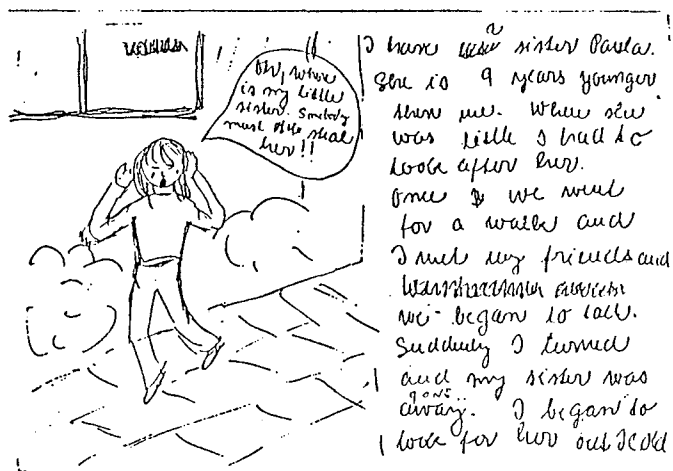 Oh, where
is my little
sister. Somebody
must of steal
her!!
I have a sister Paula.
She is 9 years younger
then me. When she
was little I had to
look after her.
Once we went
for a walk and
I met my friends and
we began to talk.
Suddenly I turned
and my sister was
gone
away. I began to
look for her